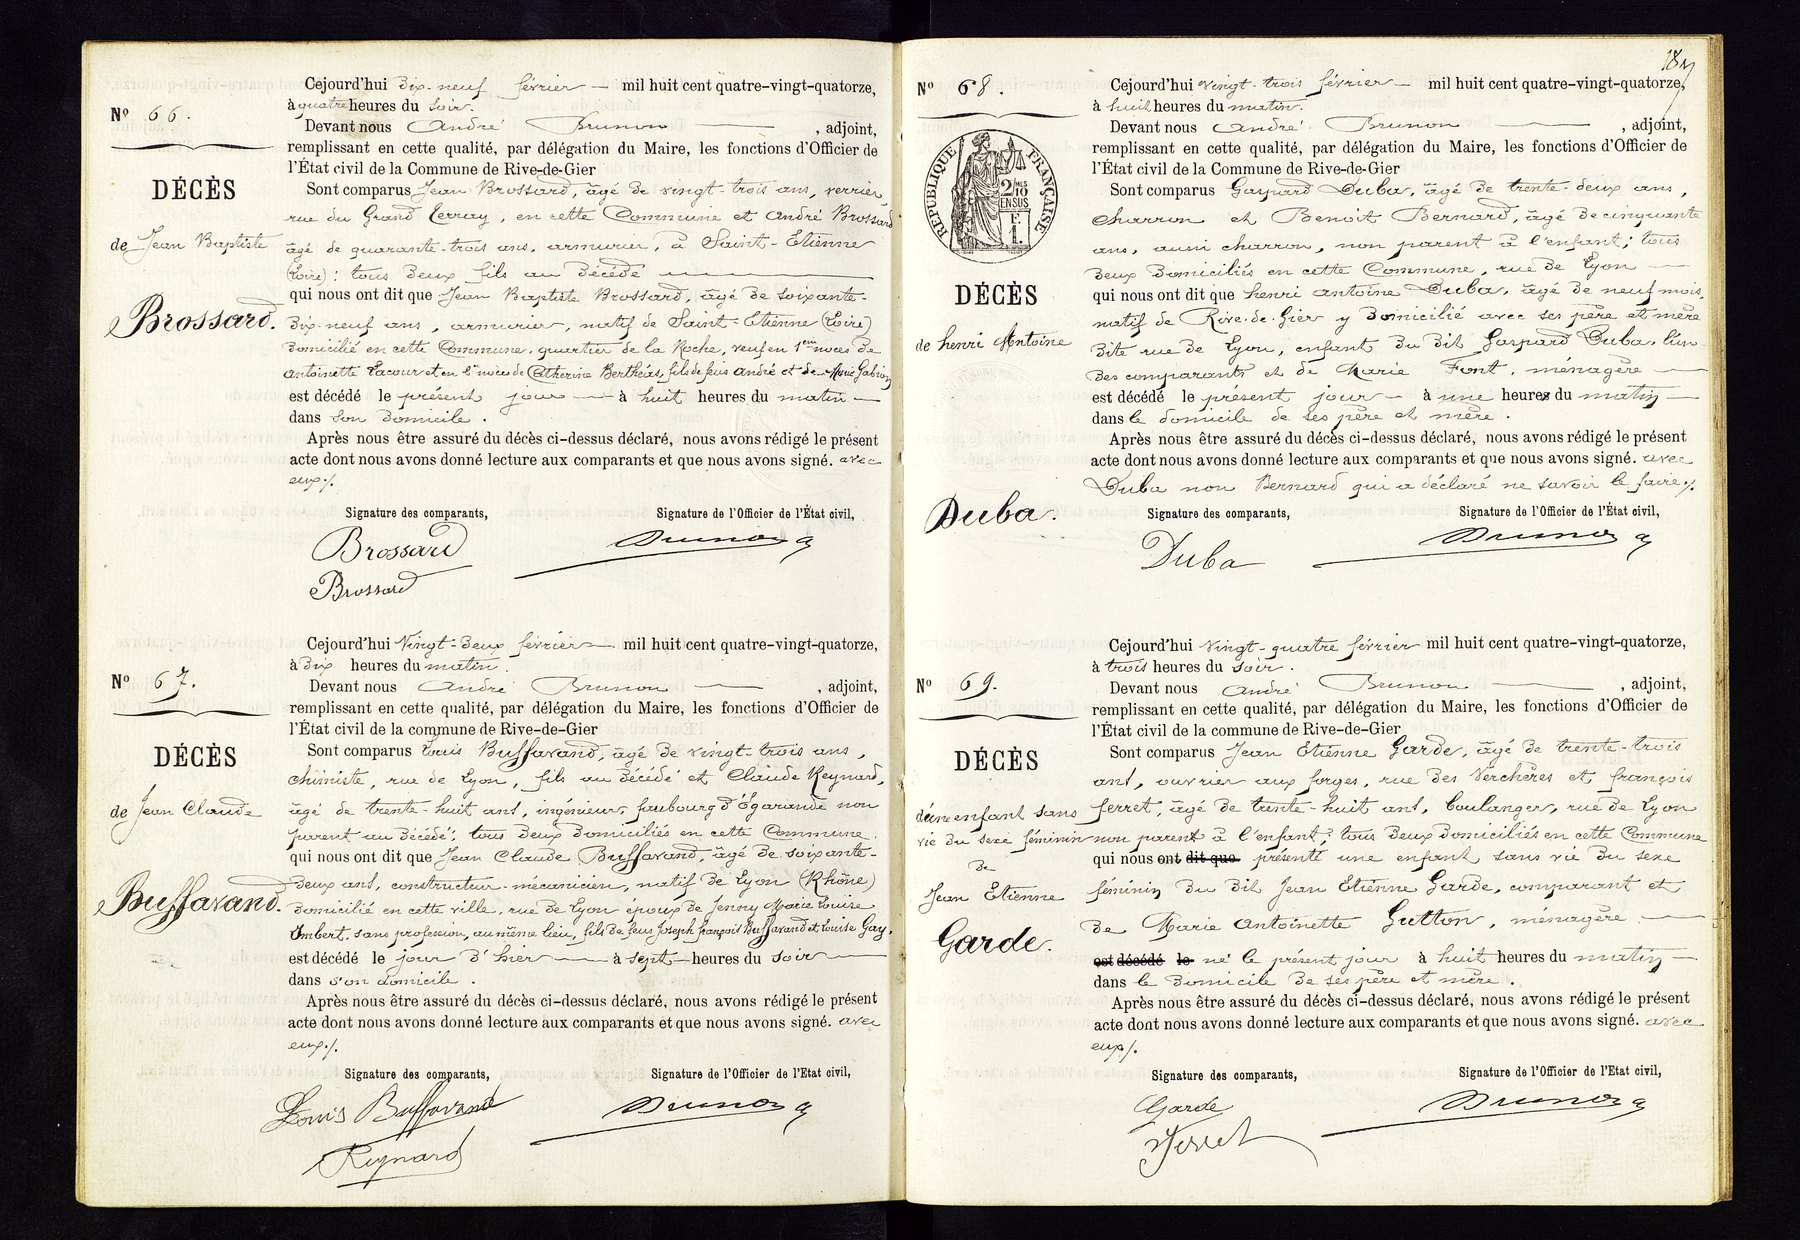 Nº 66.
DÉCÈS
de Jean Baptiste
Brossard.
Cejourd'hui dix-neuf février — mil huit cent quatre-vingt-quatorze,
à quatre heures du soir.
Devant nous André Brunon — , adjoint,
remplissant en cette qualité, par délégation du Maire, les fonctions d'Officier de
l'État civil de la Commune de Rive-de-Gier
Sont comparus Jean Brossard, âgé de vingt-trois ans, verrier,
rue du Grand Terray, en cette Commune et André Brossard
âgé de quarante-trois ans, armurier, à Saint-Etienne
(Loire); tous deux fils au décédé —
qui nous ont dit que Jean Baptiste Brossard, âgé de soixante-
dix-neuf ans, armurier, natif de Saint-Etienne (Loire)
domicilié en cette Commune, quartier de la Roche, veuf en 1ères noces de
Antoinette Lacour et en 2e noces de Catherine Berthéas, fils de feus André et de Marie Gabion
est décédé le présent jour — à huit heures du matin —
dans son domicile.
Après nous être assuré du décès ci-dessus déclaré, nous avons rédigé le présent
acte dont nous avons donné lecture aux comparants et que nous avons signé. avec
eux ./.
Signature des comparants, Signature de l'Officier de l'État civil,
Brossard Brunon a
Brossard
Nº 67.
DÉCÈS
de Jean Claude
Buffavand.
Cejourd'hui vingt-deux février — mil huit cent quatre-vingt-quatorze,
à dix heures du matin.
Devant nous André Brunon — , adjoint,
remplissant en cette qualité, par délégation du Maire, les fonctions d'Officier de
l'État civil de la commune de Rive-de-Gier
Sont comparus Louis Buffavand, âgé de vingt-trois ans,
chimiste, rue de Lyon, fils au décédé et Claude Reynard,
âgé de trente-huit ans, ingénieur, faubourg d'Égarande non
parent au décédé; tous deux domiciliés en cette Commune
qui nous ont dit que Jean Claude Buffavand, âgé de soixante-
deux ans, constructeur-mécanicien, natif de Lyon (Rhône)
domicilié en cette ville, rue de Lyon époux de Jenny Marie Louise
Imbert, sans profession, au même lieu, fils de feus Joseph françois Buffavand et Louise Gay,
est décédé le jour d'hier — à sept — heures du soir —
dans s'on domicile.
Après nous être assuré du décès ci-dessus déclaré, nous avons rédigé le présent
acte dont nous avons donné lecture aux comparants et que nous avons signé. avec
eux ./.
Signature des comparants, Signature de l'Officier de l'Etat civil,
Louis Buffavand Brunon a
Reynard
Nº 68.
RÉPUBLIQUE FRANÇAISE
2/10 EN SUS
F. 1.
DÉCÈS
de henri Antoine
Duba.
Cejourd'hui vingt-trois février — mil huit cent quatre-vingt-quatorze,
à huit heures du matin.
Devant nous André Brunon — , adjoint,
remplissant en cette qualité, par délégation du Maire, les fonctions d'Officier de
l'État civil de la Commune de Rive-de-Gier
Sont comparus Gaspard Duba, âgé de trente-deux ans,
charron et Benoit Bernard, âgé de cinquante
ans, aussi charron, non parent à l'enfant; tous
deux domiciliés en cette Commune, rue de Lyon —
qui nous ont dit que henri antoine Duba, âgé de neuf mois,
natif de Rive-de-Gier y domicilié avec ses père et mère
dite rue de Lyon, enfant du dit Gaspard Duba, l'un
des comparants et de Marie Font, ménagère —
est décédé le présent jour — à une heures du matin —
dans le domicile de ses père et mère.
Après nous être assuré du décès ci-dessus déclaré, nous avons rédigé le présent
acte dont nous avons donné lecture aux comparants et que nous avons signé. avec
Duba non Bernard qui a déclaré ne savoir le faire ./.
Signature des comparants, Signature de l'Officier de l'État civil,
Duba Brunon a
Nº 69.
DÉCÈS
d'une enfant sans
vie du sexe féminin
de
Jean Etienne
Garde.
Cejourd'hui vingt-quatre février mil huit cent quatre-vingt-quatorze,
à trois heures du soir.
Devant nous André Brunon — , adjoint,
remplissant en cette qualité, par délégation du Maire, les fonctions d'Officier de
l'État civil de la commune de Rive-de-Gier
Sont comparus Jean Etienne Garde, âgé de trente-trois
ans, ouvrier aux forges, rue des Verchères et françois
ferret, âgé de trente-huit ans, boulanger, rue de Lyon
non parent à l'enfant; tous deux domiciliés en cette Commune
qui nous ont dit que présenté une enfant sans vie du sexe
féminin du dit Jean Etienne Garde, comparant et
de Marie Antoinette Gutton, ménagère —
est décédé le né le présent jour à huit heures du matin —
dans le domicile de ses père et mère.
Après nous être assuré du décès ci-dessus déclaré, nous avons rédigé le présent
acte dont nous avons donné lecture aux comparants et que nous avons signé. avec
eux ./.
Signature des comparants, Signature de l'Officier de l'Etat civil,
Garde Brunon a
Ferret